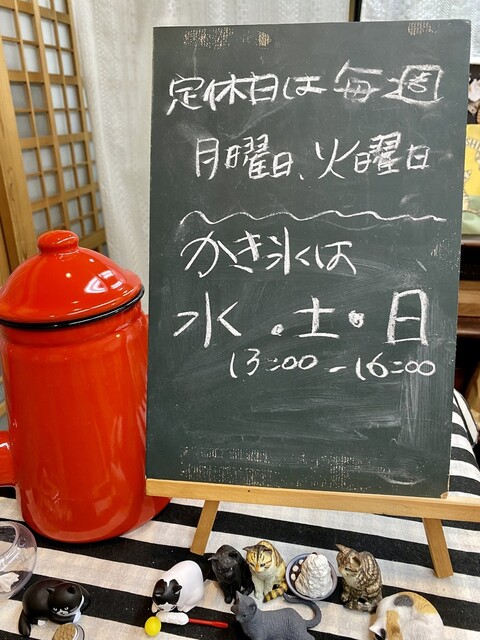 定休日は毎週
月曜日、火曜日
かき氷は
水・土・日
13:00-16:00